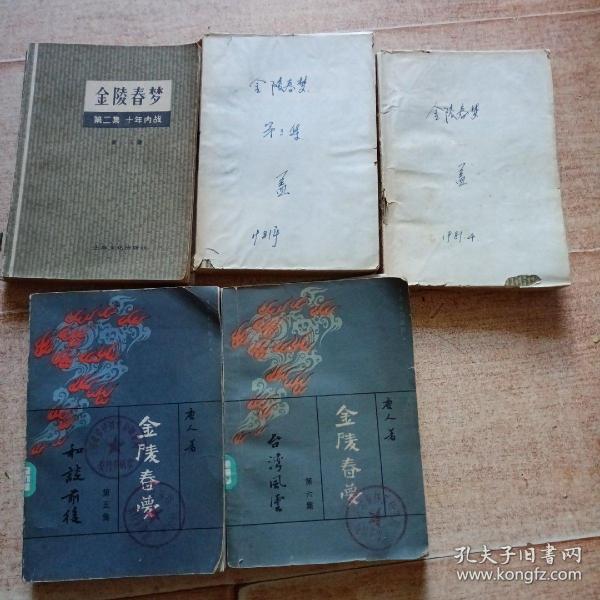 金陵春梦
第二集 十年内战
上海文化出版社
金陵春梦
第3集
1981年
金陵春梦
1981.4
唐人著
金陵春夢
和談前後
第五集
唐人著
金陵春夢
台湾風雲
第六集
孔夫子旧书网
www.kongfz.com